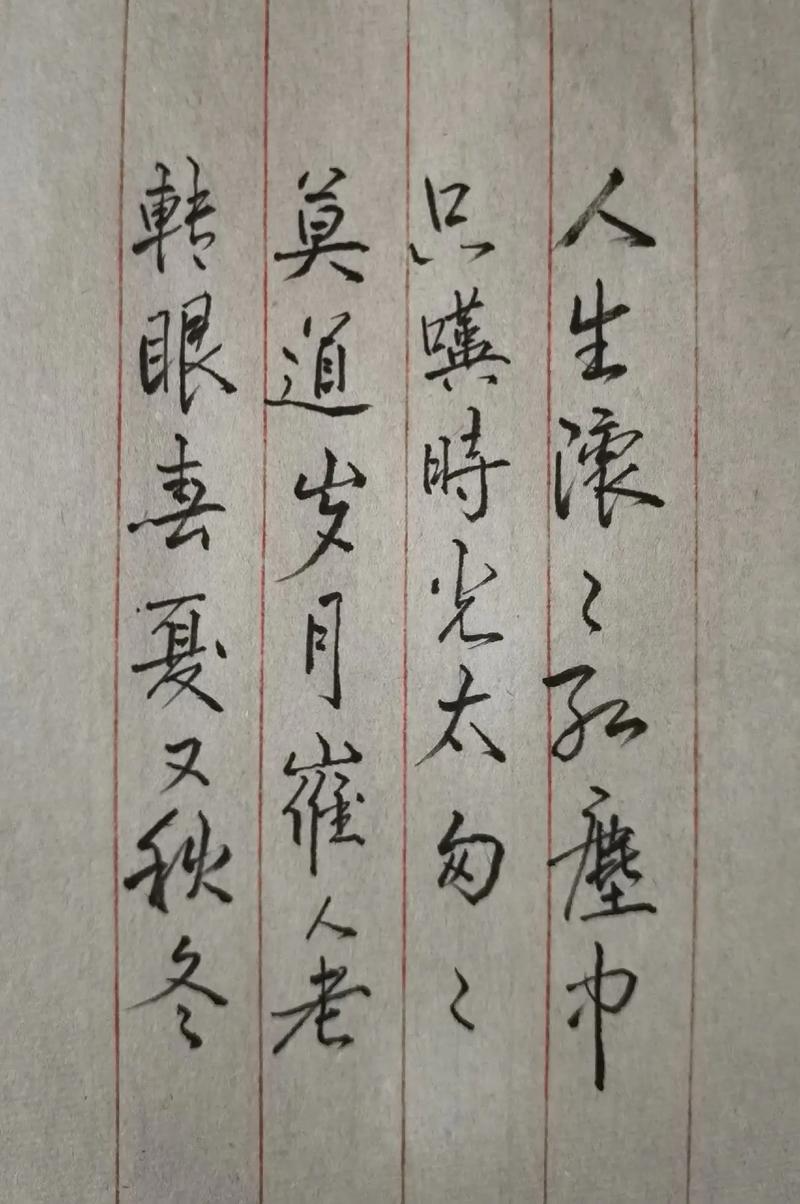 人生滚〻红塵中
只嘆時光太匆〻
莫道岁月催人老
轉眼春夏又秋冬